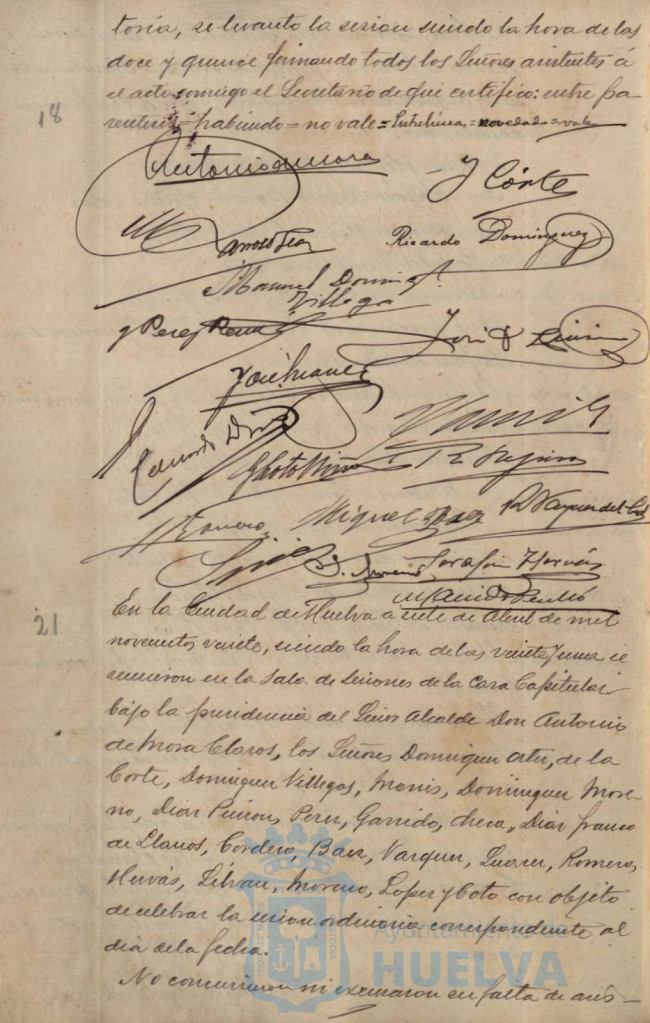 toria, se levanto la sesion siendo la hora de las
doce y quince firmando todos los Señores asistentes á
el acto conmigo el Secretario de que certifico: entre pa
rentesis=habiendo=no vale=Entrelineas=novedad=vale
18
Antonio de Mora
J Córte
Ricardo Dominguez
Manuel Doming.
Villegas
J Perez
José
Eduardo Diaz
Coto
Romero
Miguel Baez
R Vazquez del
J. Moreno
Serafin Hervás
21
En la Ciudad de Huelva a siete de Abril de mil
novecientos veinte, siendo la hora de las veinte y una se
reunieron en la Sala de Sesiones de la Casa Capitular
bajo la presidencia del Señor Alcalde Don Antonio
de Mora Claros, los Señores Dominguez Ortiz, de la
Corte, Dominguez Villegas, Monis, Dominguez More-
no, Diaz Quiros, Perez, Garrido, Checa, Diaz Franco
de Llanos, Cordero, Baez, Vazquez, Suarez, Romero,
Hervás, Silvan, Moreno, Lopez y Coto con objeto
de celebrar la sesion ordinaria correspondiente al
dia de la fecha.
No concurrieron ni excusaron su falta de asis-
Ayuntamiento de
HUELVA